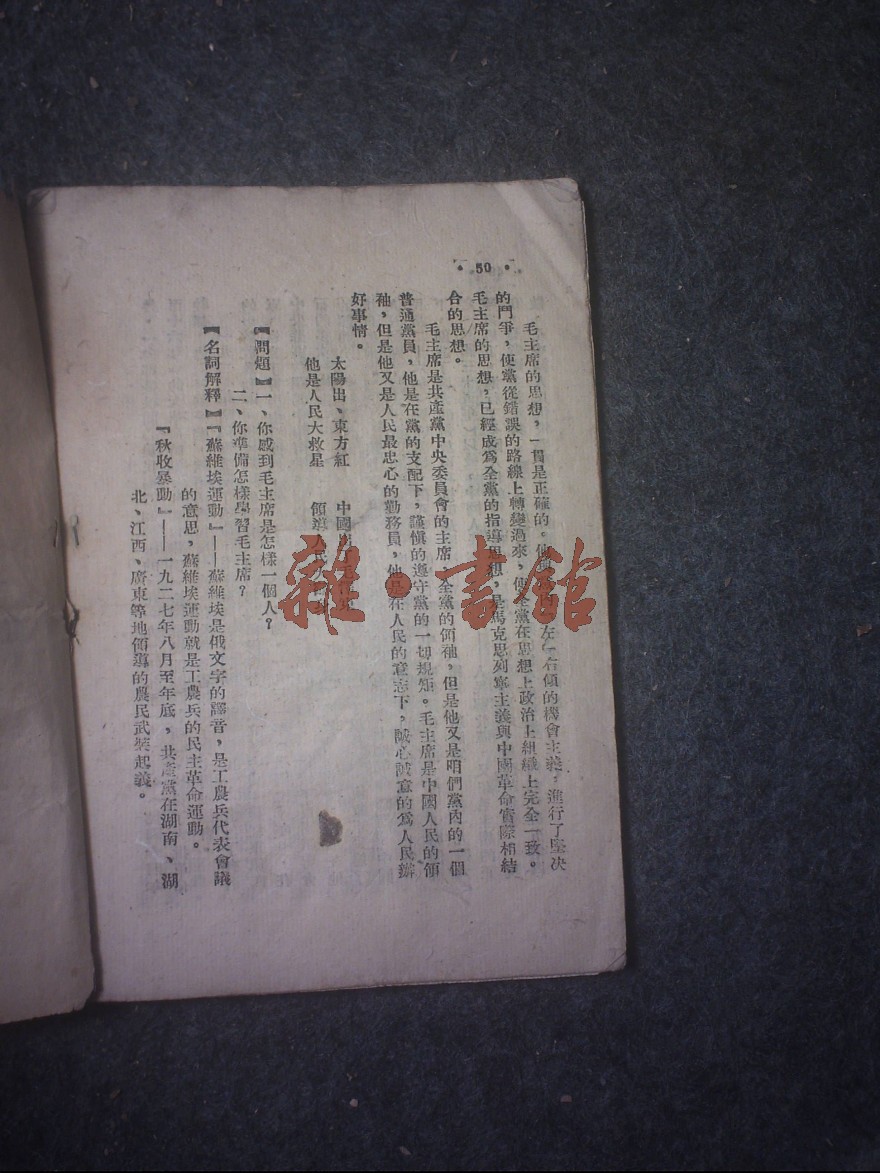 • 50 •
毛主席的思想，一貫是正確的。他 左 右傾的機會主義，進行了堅决
的鬥爭，使黨從錯誤的路線上轉變過來，使全黨在思想上政治上組織上完全一致。
毛主席的思想，已經成爲全黨的指導思想，是馬克思列寧主義與中國革命實際相結
合的思想。
毛主席是共產黨中央委員會的主席 全黨的領袖，但是他又是咱們黨內的一個
普通黨員，他是在黨的支配下，謹愼的遵守黨的一切規矩。毛主席是中國人民的領
袖，但是他又是人民最忠心的勤務員，他是在人民的意志下，誠心誠意的爲人民辦
好事情。
太陽出、東方紅 中國
他是人民大救星 領導人民
【問題】一、你感到毛主席是怎樣一個人？
二、你準備怎樣學習毛主席？
【名詞解釋】『蘇維埃運動』——蘇維埃是俄文字的譯音，是工農兵代表會議
的意思，蘇維埃運動就是工農兵的民主革命運動。
『秋收暴動』——一九二七年八月至年底，共產黨在湖南、湖
北、江西、廣東等地領導的農民武裝起義。
雜·書館